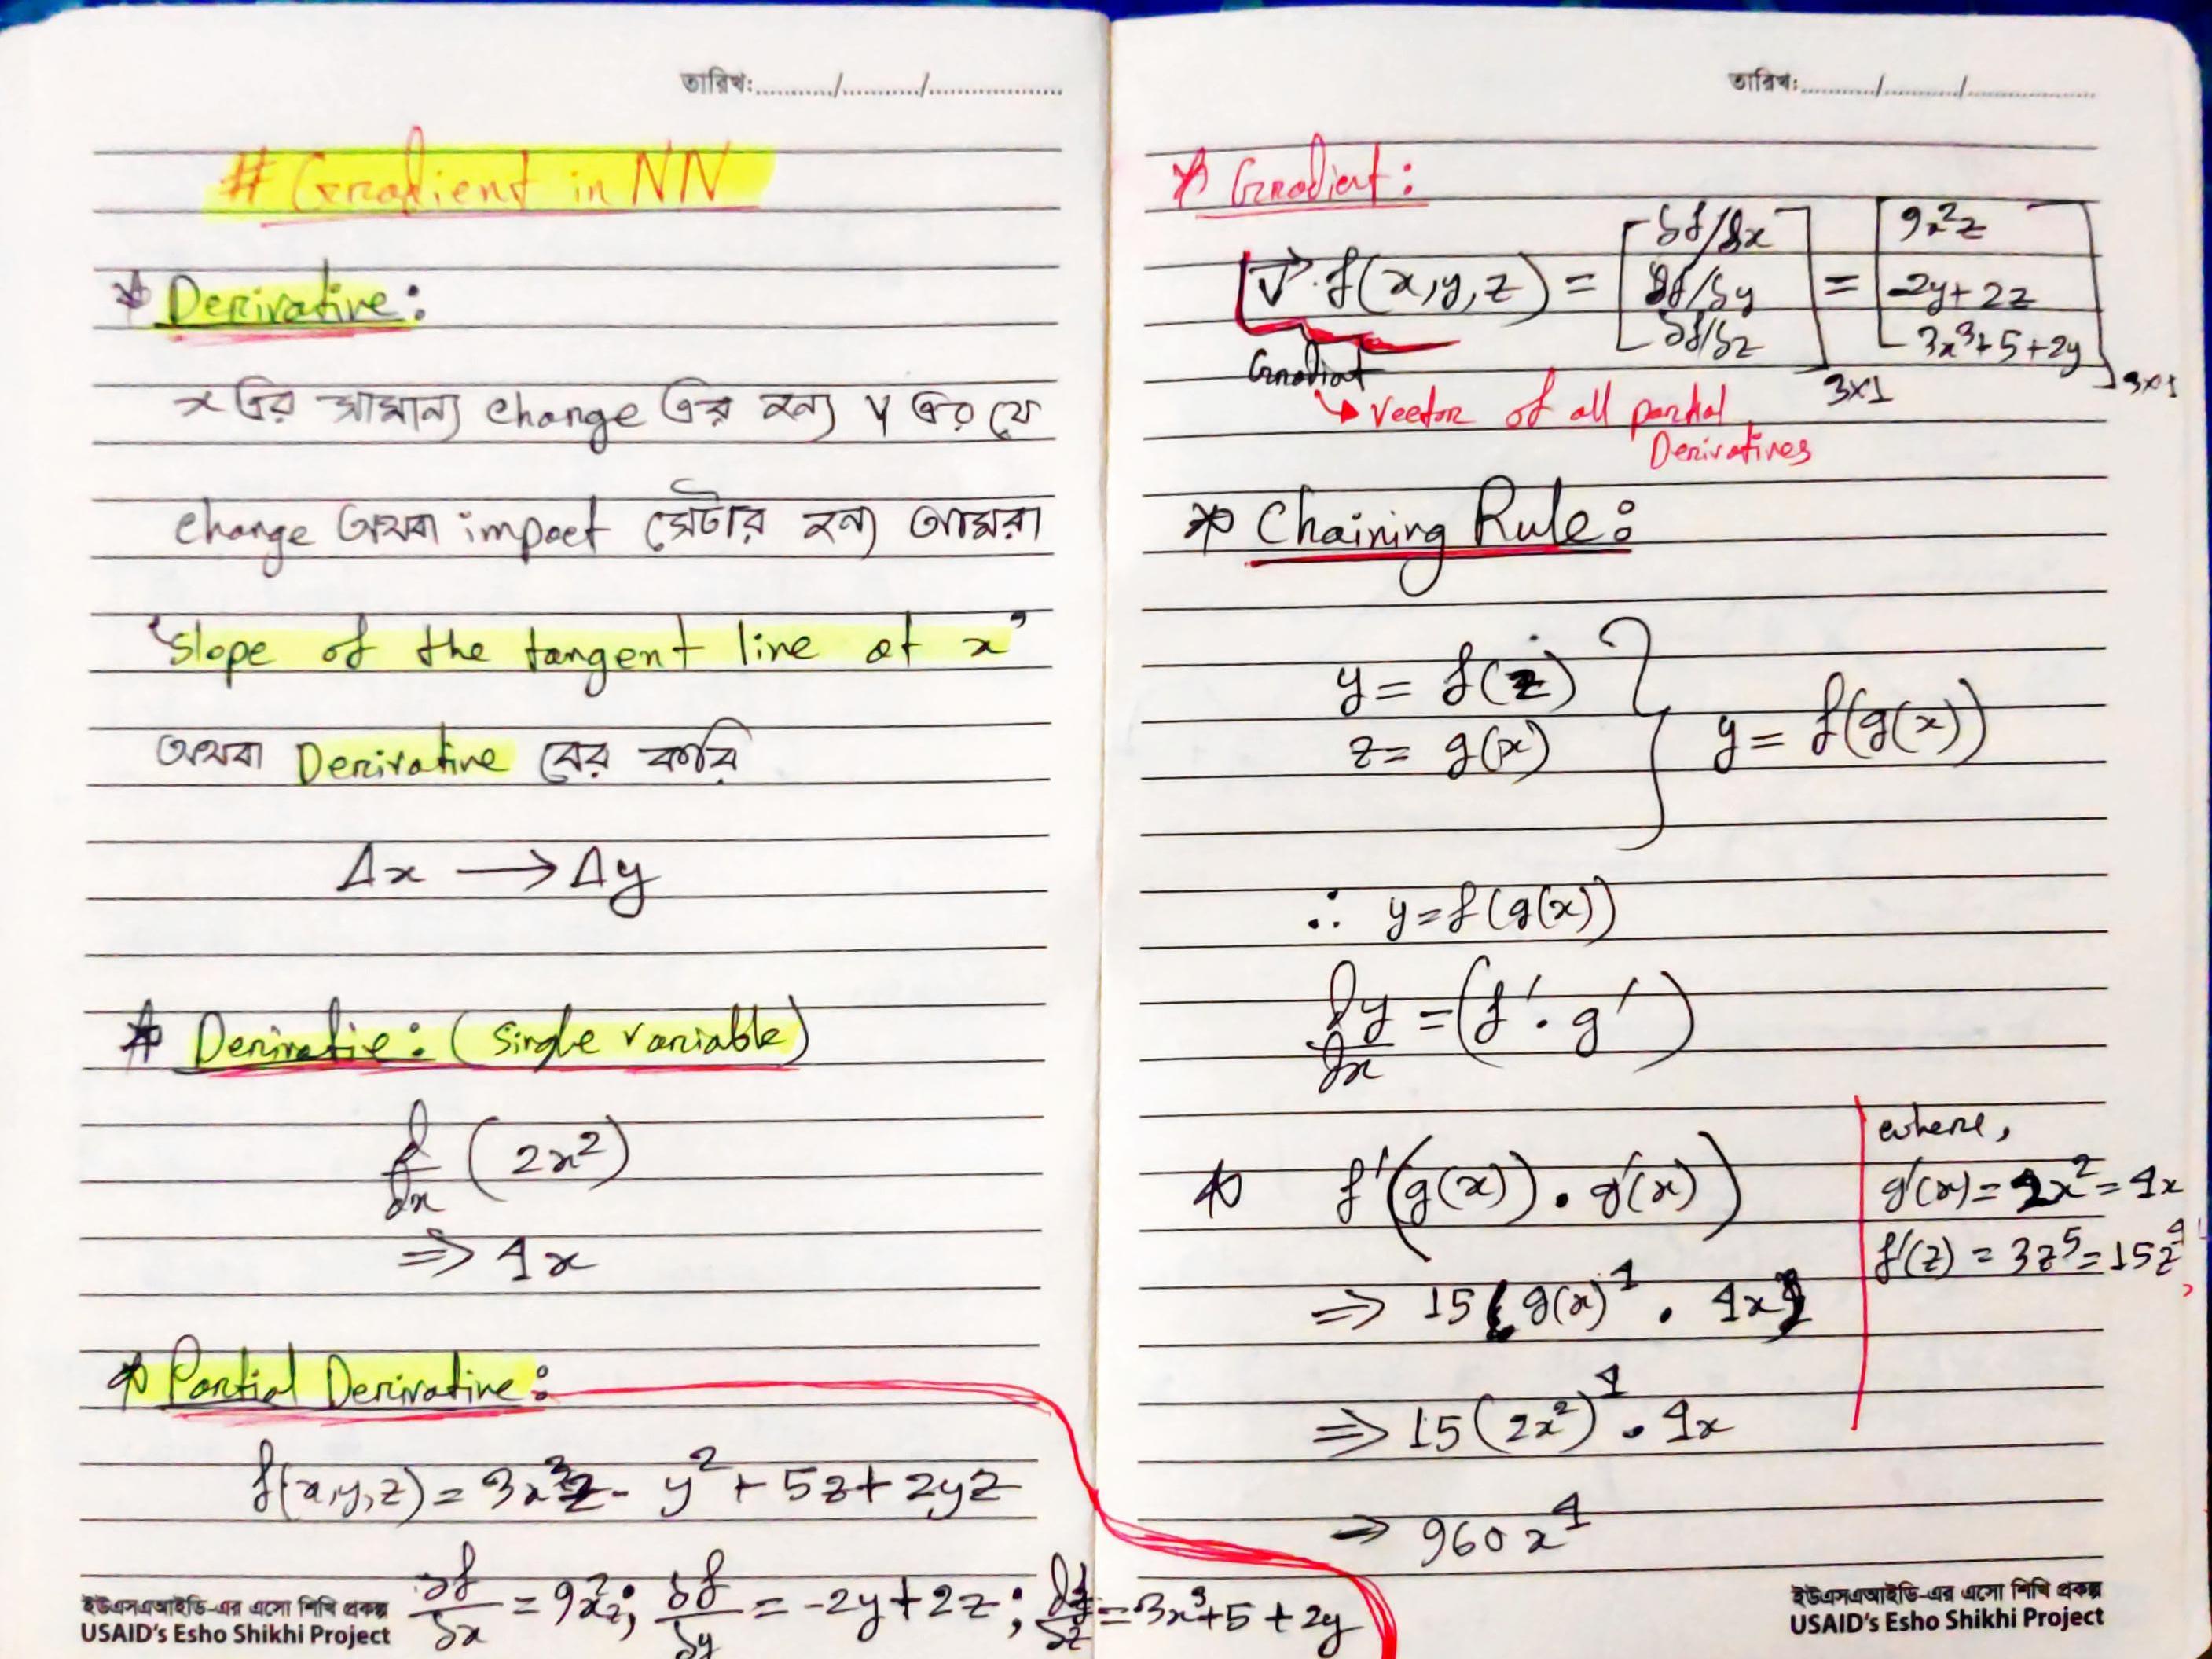 তারিখ:............/............/....................
# Gradient in NN
* Derivative:
x এর সামান্য change এর জন্য y এর যে
change অথবা impact সেটার জন্য আমরা
'Slope of the tangent line at x'
অথবা Derivative বের করি
Δx → Δy
* Derivative: (Single variable)
d/dx (2x²)
⇒ 4x
* Partial Derivative:
f(x,y,z) = 3x³z - y² + 5z + 2yz
δf/δx = 9x²z; δf/δy = -2y + 2z; δf/δz = 3x³ + 5 + 2y
ইউএসএআইডি-এর এসো শিখি প্রকল্প
USAID's Esho Shikhi Project
তারিখ:............/............/....................
* Gradient:
∇⃗·f(x,y,z) = [δf/δx δf/δy δf/δz] 3×1 = [9x²z -2y+2z 3x³+5+2y] 3×1
Gradient
↳ Vector of all partial
Derivatives
* Chaining Rule:
y = f(z)
z = g(x) } y = f(g(x))
∴ y = f(g(x))
dy/dx = (f' · g')
* f'(g(x)) · g'(x))
where,
g'(x) = 2x² = 4x
f'(z) = 3z⁵ = 15z⁴
⇒ 15(g(x)⁴ · 4x)
⇒ 15(2x²)⁴ · 4x
⇒ 960x⁴
ইউএসএআইডি-এর এসো শিখি প্রকল্প
USAID's Esho Shikhi Project